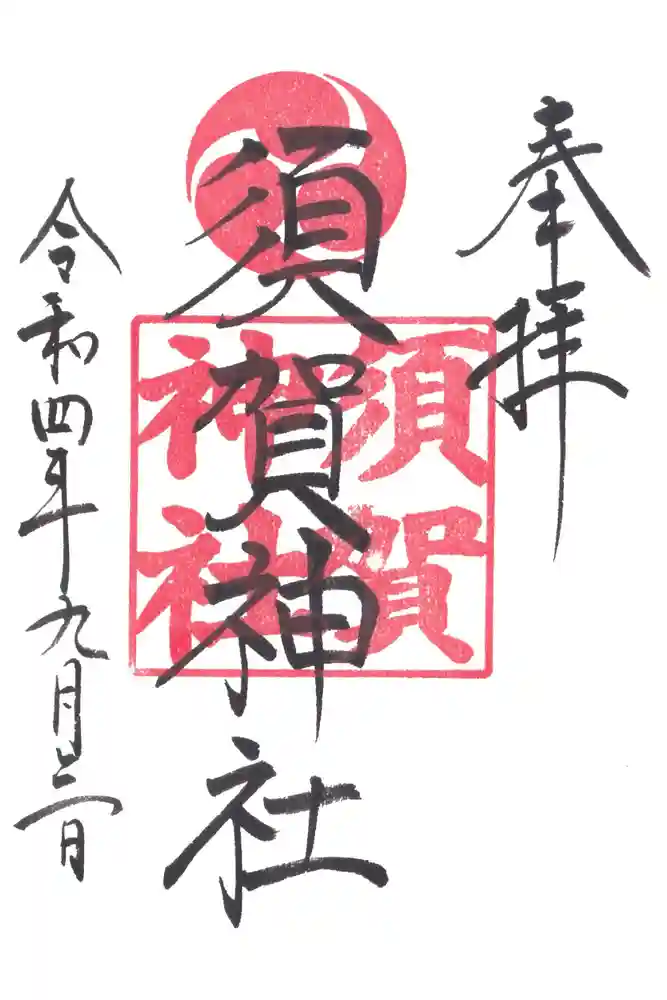 奉拝
須賀神社
須賀
神社
令和四年九月三日